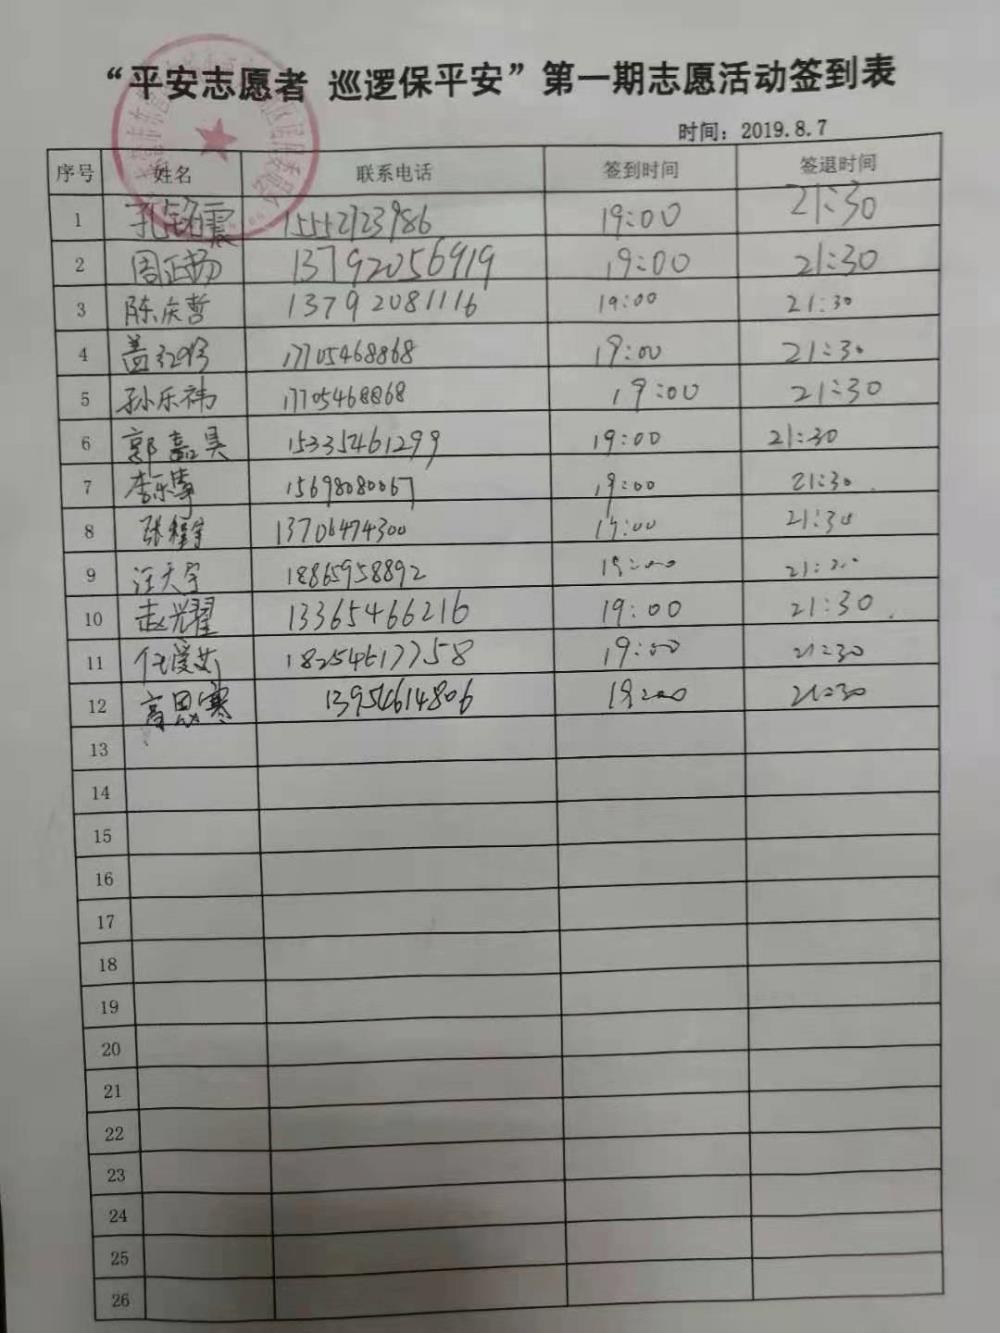 “平安志愿者 巡逻保平安”第一期志愿活动签到表
时间：2019.8.7
序号 姓名 联系电话 签到时间 签退时间
1 孔铭震 15552723986 19:00 21:30
2 周正扬 13792056919 19:00 21:30
3 陈庆哲 13792081116 19:00 21:30
4 盖 17705468868 19:00 21:30
5 孙乐祎 17705468868 19:00 21:30
6 郭嘉昊 15335461299 19:00 21:30
7 李乐 15698080067 19:00 21:30
8 张程宇 13706474300 19:00 21:30
9 汪天宇 18865958892 19:00 21:30
10 赵兴耀 13365466216 19:00 21:30
11 任爱 18254617758 19:00 21:30
12 高恩寒 13954614806 19:00 21:30
13
14
15
16
17
18
19
20
21
22
23
24
25
26